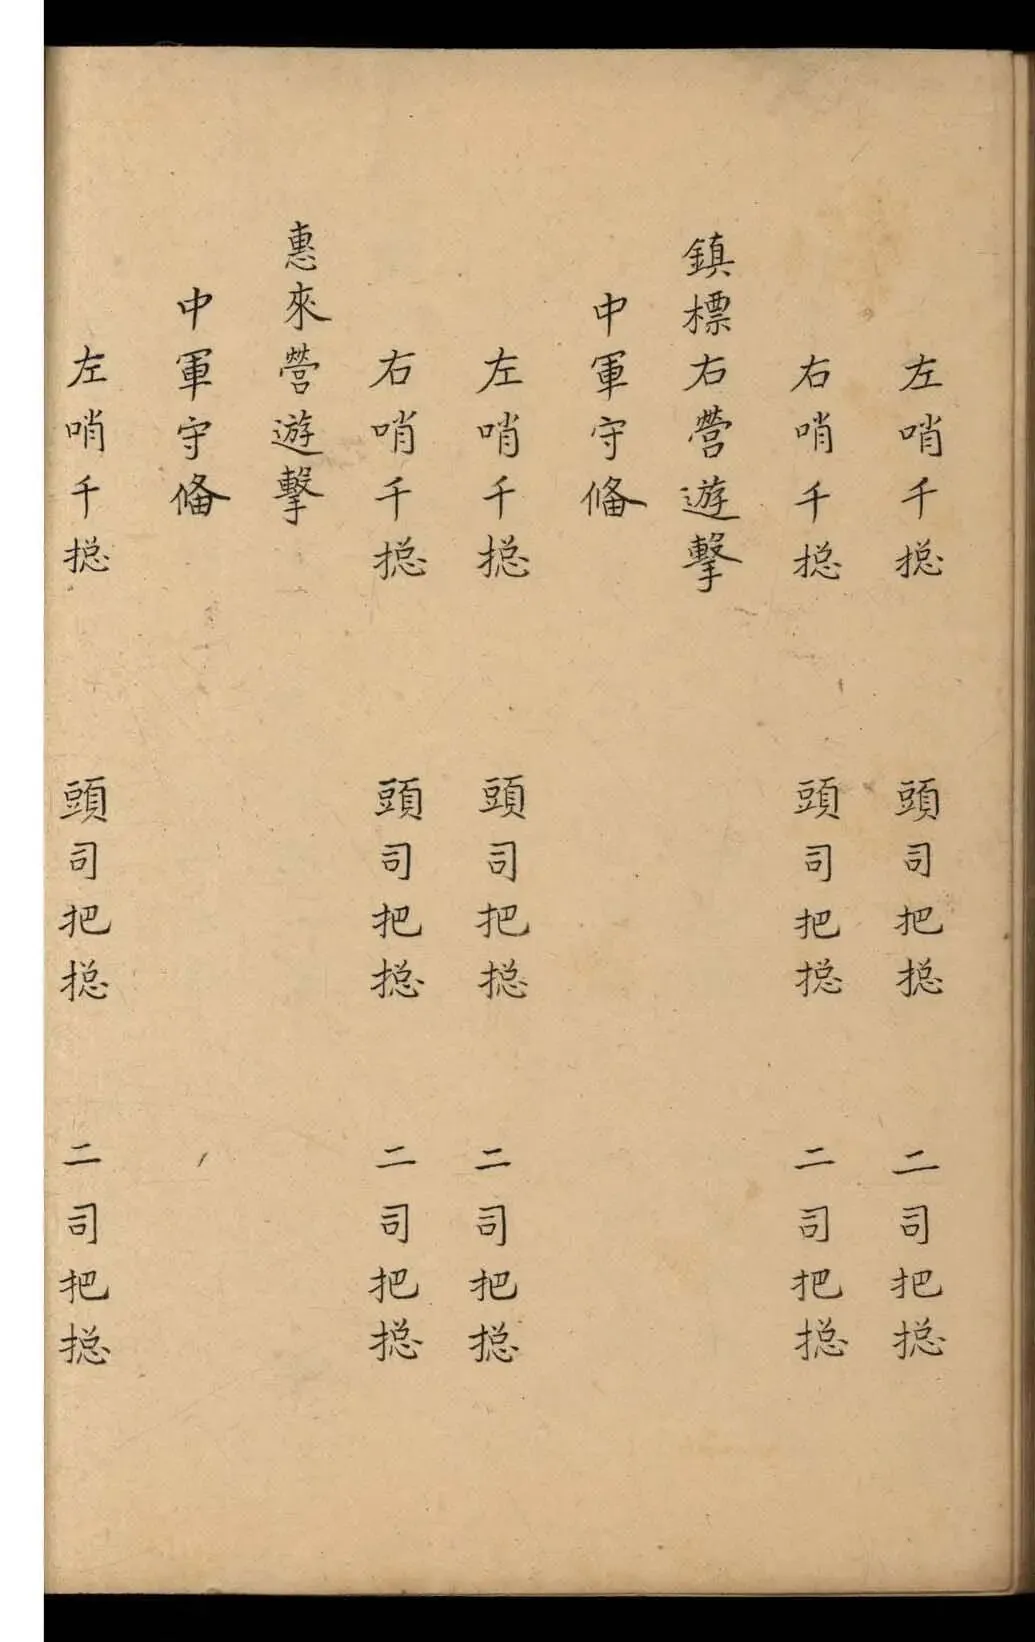 左哨千摠 頭司把摠 二司把摠
右哨千摠 頭司把摠 二司把摠
鎮標右營遊擊
中軍守備
左哨千摠 頭司把摠 二司把摠
右哨千摠 頭司把摠 二司把摠
惠來營遊擊
中軍守備
左哨千摠 頭司把摠 二司把摠